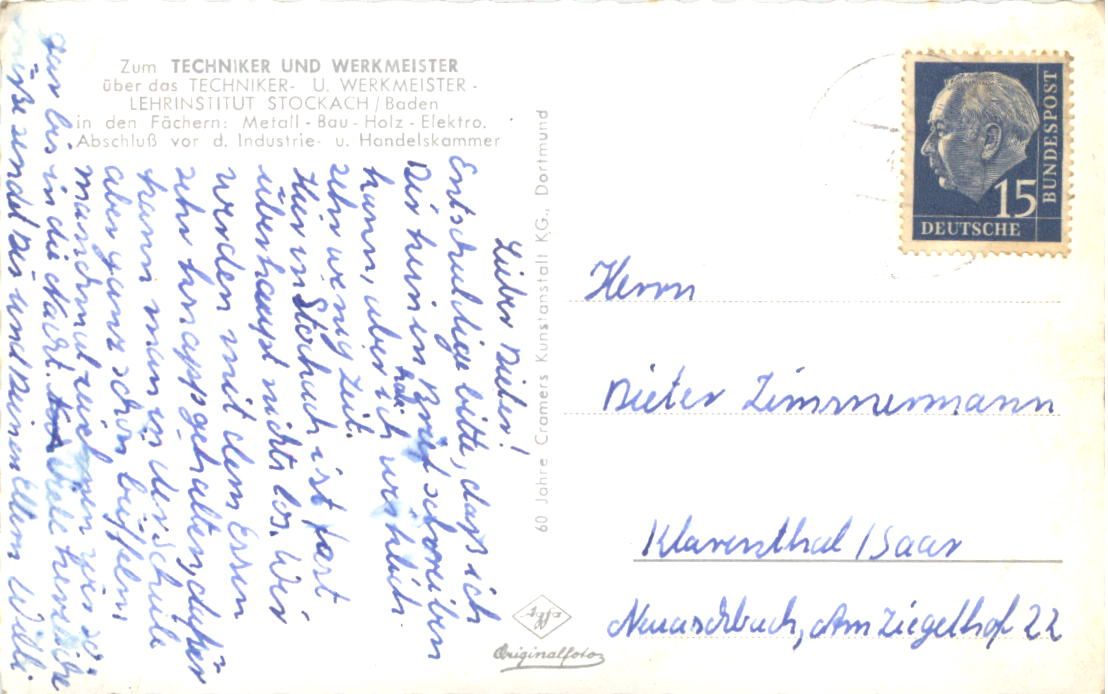 Zum TECHNIKER UND WERKMEISTER
über das TECHNIKER- U. WERKMEISTER-
LEHRINSTITUT STOCKACH/Baden
in den Fächern: Metall-Bau-Holz-Elektro.
Abschluß vor d. Industrie- u. Handelskammer
Lieber Dieter!
Entschuldige bitte, daß ich
Dir keinen Brief schreiben
kann, aber ich hab wirklich
sehr wenig Zeit.
Hier in Stockach ist fast
überhaupt nichts los. Wir
werden mit dem Essen
sehr knapp gehalten, dafür
kann man in der Schule
aber ganz schön büffeln,
manchmal zeichnen wir so=
gar bis in die Nacht. Viele herzliche
Grüße sendet Dir und Deinen Eltern Willi.
60 Jahre Cramers Kunstanstalt KG., Dortmund
Agfa
Originalfoto
15
DEUTSCHE
BUNDESPOST
Herrn
Dieter Zimmermann
Klarenthal/Saar
Neuaschbach, Am Ziegelhof 22